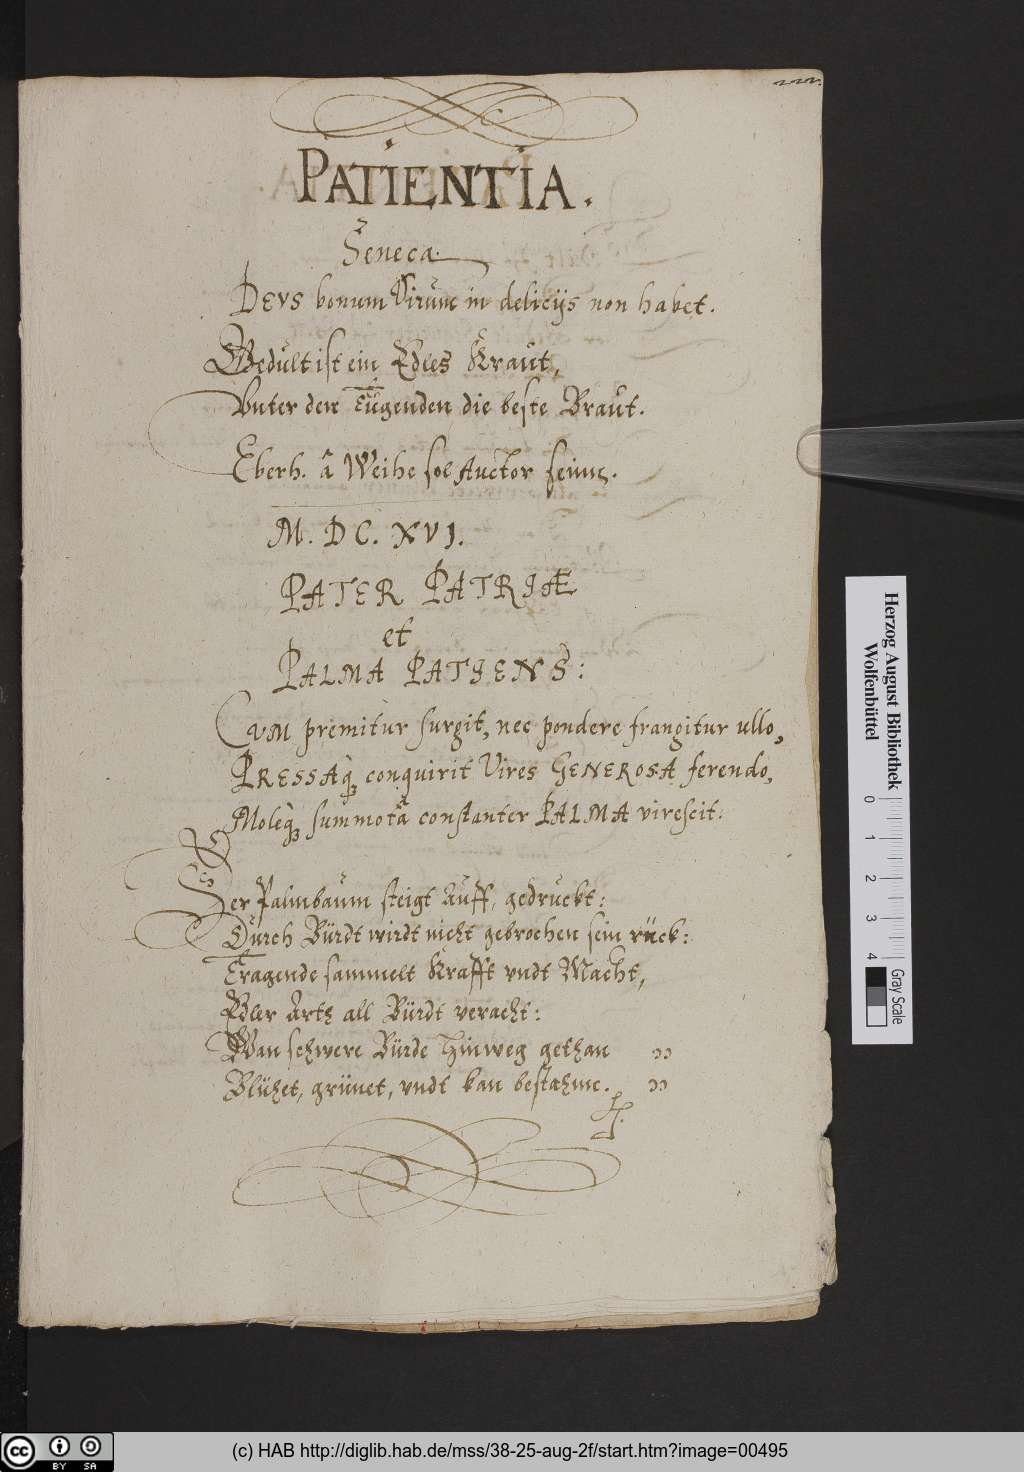 222.
PATIENTIA.
Seneca.
DEVS bonum Virum in delicijs non habet.
Gedult ist ein Edles Kraut,
Vnter den Tugenden die beste Braut.
Eberh. â Weihe sol Auctor seinn.
M. DC. XVI.
PATER PATRIÆ
et
PALMA PATIENS:
CVM premitur surgit, nec pondere frangitur ullo,
PRESSAq; conquirit Vires GENEROSA ferendo,
Moleq; summotâ constanter PALMA virescit:
Der Palmbaum steigt Auff, gedruckt:
Durch Bürdt wirdt nicht gebrochen sein rück:
Tragende sammelt Krafft vndt Macht,
Edler Arth all Bürdt veracht:
Wan schwere Bürde hinweg gethan
Blühet, grünet, vndt kan bestahnn.
Herzog August Bibliothek
Wolfenbüttel
0 1 2 3 4
Gray Scale
cc BY SA
(c) HAB http://diglib.hab.de/mss/38-25-aug-2f/start.htm?image=00495